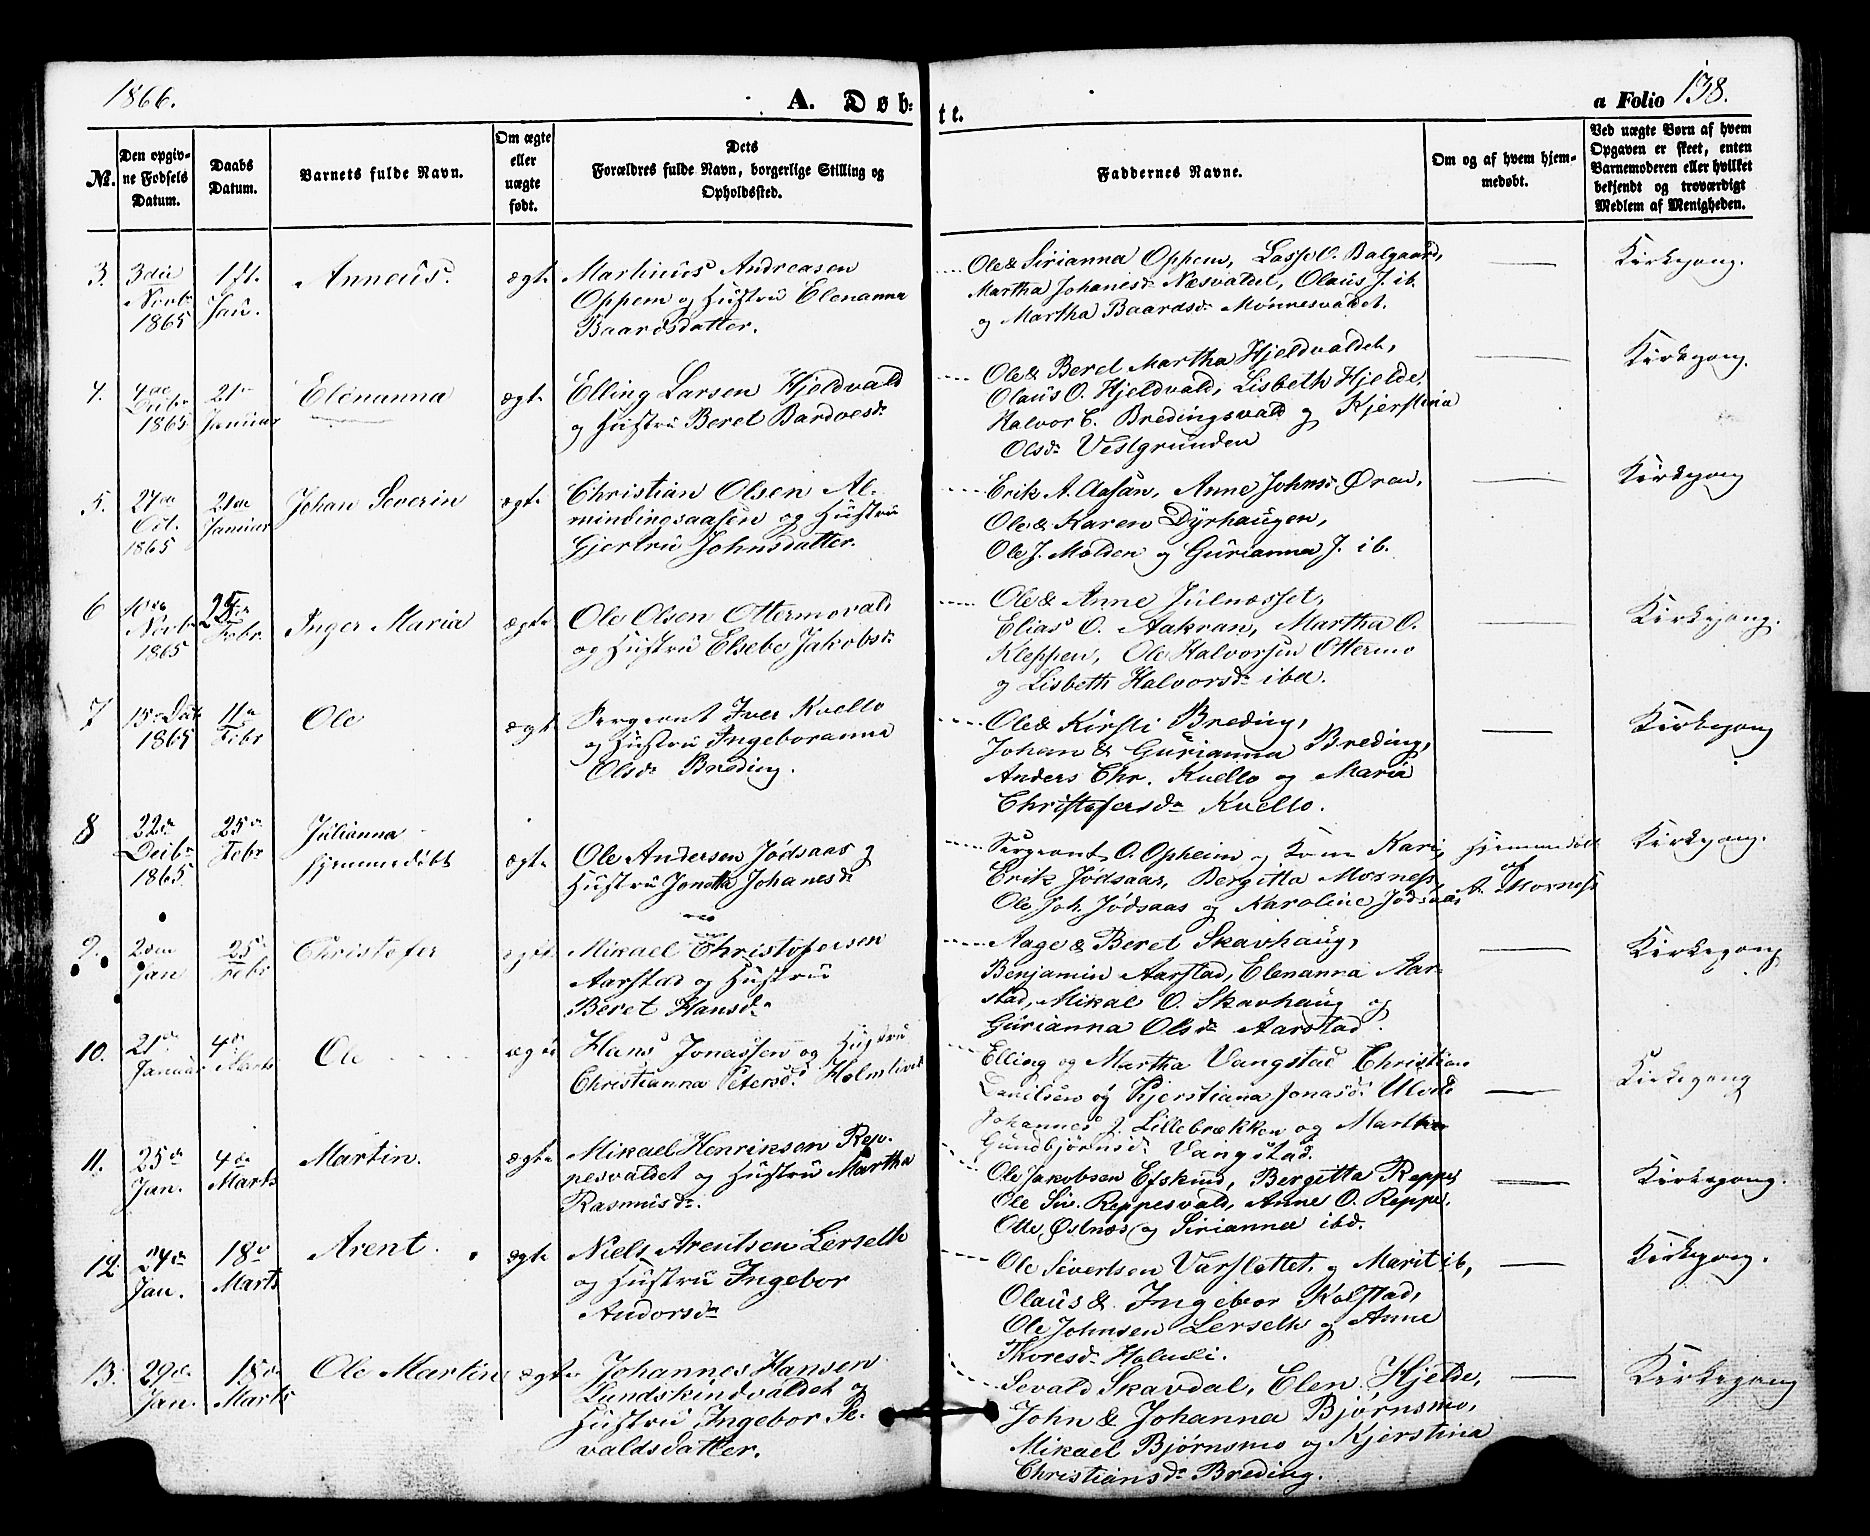 1866.
A. Døb-
te.
a Folio 138.
№.
Den opgiv-
ne Fødsels
Datum.
Daabs
Datum.
Barnets fulde Navn.
Om ægte
eller
uægte
født.
Dets
Forældres fulde Navn, borgerlige Stilling og
Opholdssted.
Faddernes Navne.
Om og af hvem hjem-
medøbt.
Ved uægte Born af hvem
Opgaven er skeet, enten
Barnemoderen eller hvilket
bekjendt og troværdigt
Medlem af Menigheden.
3.
3die
Novbr
1865
1ste
Jan.
Anneus.
ægte
Martinus Andreasen
Oppem og Hustru Elenanna
Baardsdatter.
Ole & Sirianna Oppem, Lasse O. Balgaard,
Martha Johanesdr Næsvaldet, Olaus J. ib.
og Martha Baardsdr Mønnesvaldet.
Kirkegang.
4.
4de
Debr
1865
21de
Januar
Elenanna
ægte
Elling Larsen Hjeldvald
og Hustru Beret Bardoesdr
Ole & Beret Martha Hjeldvaldet,
Olaus O. Hjeldvald, Lisbeth Hjelde,
Halvor E. Bredingsvald og Kjerstina
Olsdr Vestgrunden
Kirkegang.
5.
27de
Oct.
1865
21de
Januar
Johan Severin
ægte
Christian Olsen Al-
mindingsaasen og Hustru
Gjertru Johnsdatter.
Erik A. Aasan, Anne Johnsdr Øren,
Ole & Karen Dyrhaugen,
Ole J. Molden og Gurianna J. ib.
Kirkegang
6
10de
Novbr
1865
25de
Febr.
Inger Maria
ægte
Ole Olsen Ottermovald
og Hustru Elsebe Jakobsdr
Ole & Anne Julnæsset,
Elias O. Aakran, Martha O.
Kleppen, Ole Halvorsen Ottermo
og Lisbeth Halvorsdr ibd.
Kirkegang.
7
15de Debr
1865
11te
Febr
Ole
ægte
Sergeant Iver Kvello
og Hustru Ingeboranna
Olsdr Breding.
Ole & Kirsti Breding,
Johan & Gurianna Breding,
Anders Chr. Kvello og Maria
Christofersdr Kvello.
Kirkegang
8
22de
Deibr
1865
25de
Febr
Julianna
hjemmedøbt
ægte
Ole Andersen Jødsaas og
Hustru Jonetta Johanesdr
Sergeant O. Opheim og Kone Kari,
Erik Jødsaas, Bergitta Morness,
Ole Joh. Jødsaas og Karoline Jødsaas,
Hjemmedøbt
af
A. Morness
Kirkegang.
9.
2den
Jan
25de
Febr
Christofer
ægte
Mikael Christofersen
Aarstad og Hustru
Beret Hansdr
Aage & Beret Skavhaug,
Benjamin Aarstad, Elenanna Aar-
stad, Mikal O. Skavhaug og
Gurianna Olsdr Aarstad.
Kirkegang
10.
21de
Januar
4de
Marts
Ole
ægte
Hans Jonassen og Hustru
Christianna Petersdr
Elling og Martha Vangstad Christian
Danilsen og Kjerstiana Jonasdr
Johannes J. Lillebrækken og Martha
Gundbjørnsdr Vangstad.
Kirkegang
11.
25de
Jan.
4de
Marts
Martin.
ægte
Mikael Henriksen Rep-
pesvaldet og Hustru Martha
Rasmusdr.
Ole Jakobsen Efskind, Bergitta Reppe,
Ole Siv. Reppesvald, Anne O. Reppe,
Otte Østnæs og Sirianna ibd.
Kirkegang.
12
24de
Jan.
18de
Marts
Arent.
ægte
Niels Arentsen Lerseth
og Hustru Ingebor
Andorsdr
Ole Sivertsen Varslottet og Marit ib,
Olaus & Ingebor Kolstad,
Ole Johnsen Lerseth og Anne
Thoresdr
Kirkegang.
13.
29de
Jan.
18de
Marts
Ole Martin
ægte
Johannes Hansen
Sundskindvaldet og
Hustru Ingebor Se-
valdsdatter.
Sevald Skavdal, Elen Hjelde,
John & Johanna Bjørnsmo,
Mikael Bjørnsmo og Kjerstina
Christiansdr Breding.
Kirkegang